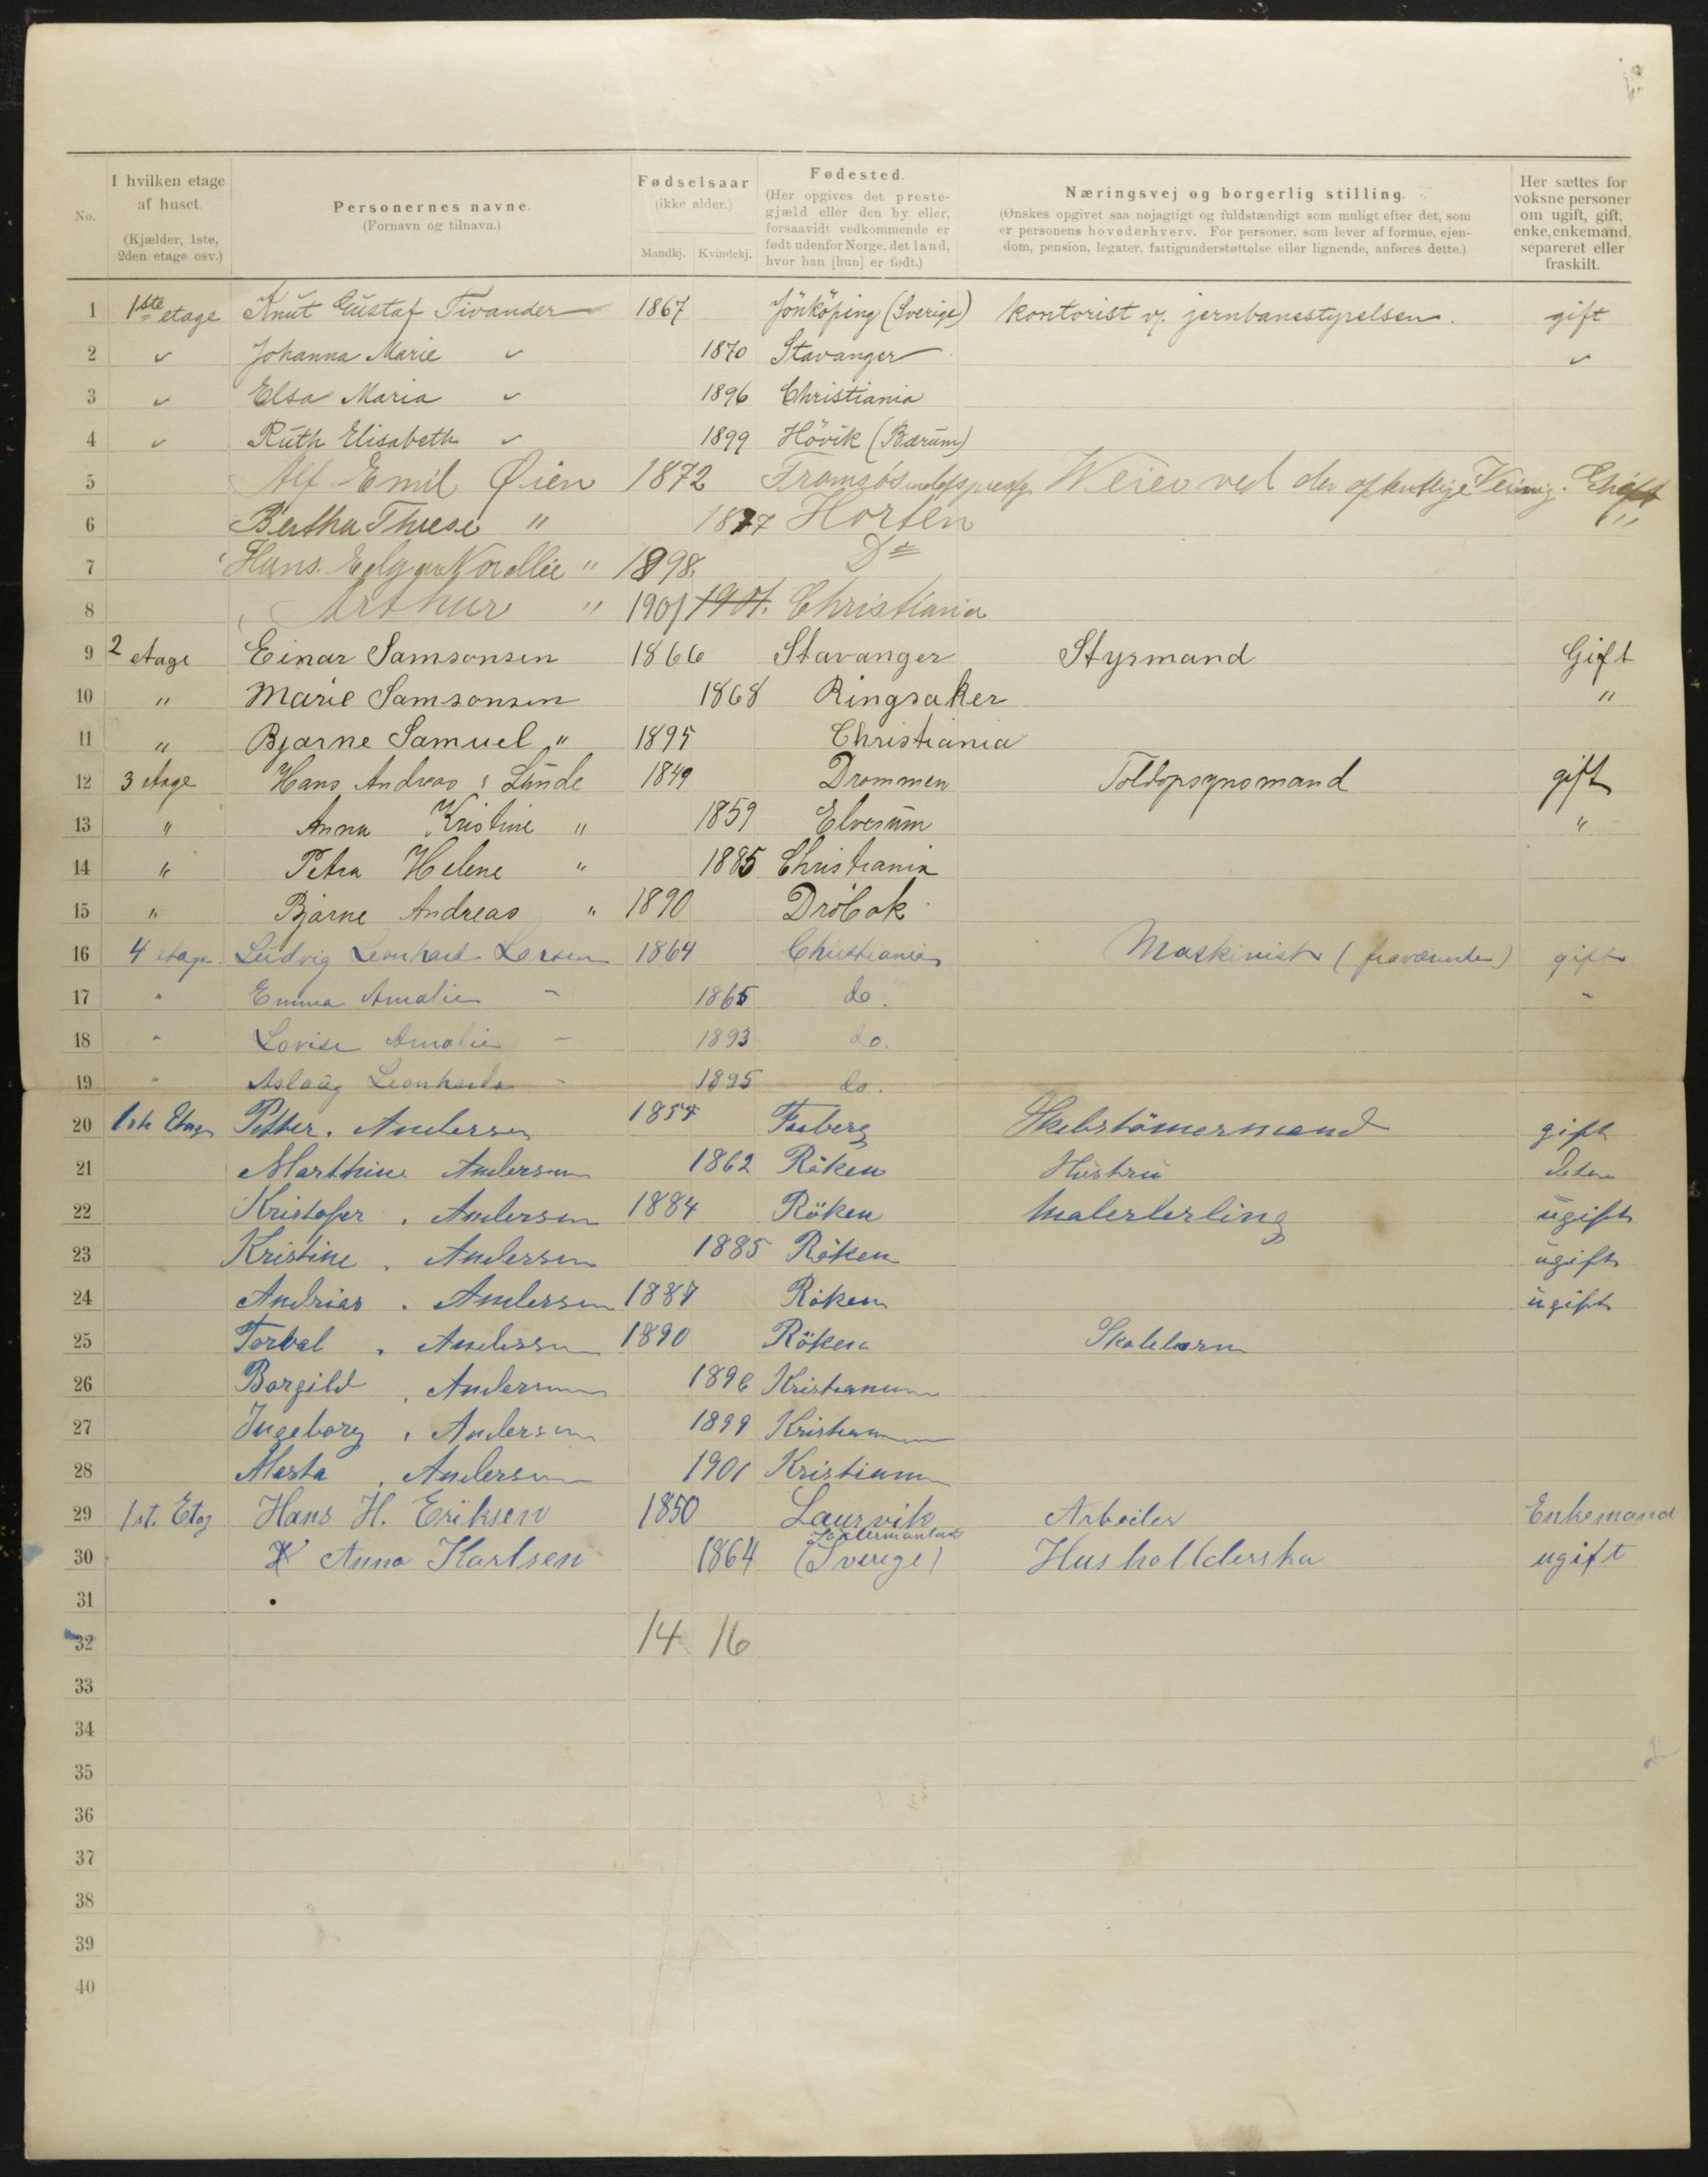 No.
I hvilken etage af huset. (Kjælder, 1ste, 2den etage osv.)
Personernes navne. (Fornavn og tilnavn.)
Fødselsaar (ikke alder.) Mandkj. Kvindekj.
Fødested. (Her opgives det prestegjæld eller den by eller, forsaavidt vedkommende er født udenfor Norge, det land, hvor han [hun] er født.)
Næringsvej og borgerlig stilling. (Ønskes opgivet saa nøjagtigt og fuldstændigt som muligt efter det, som er personens hovederhverv. For personer, som lever af formue, ejendom, pension, legater, fattigunderstøttelse eller lignende, anføres dette.)
Her sættes for voksne personer om ugift, gift, enke, enkemand, separeret eller fraskilt.
1 1ste etage Knut Gustaf Tivander 1867 Jönköping (Sverige) kontorist v. jernbanestyrelsen. gift
2 " Johanna Marie " 1870 Stavanger "
3 " Elsa Maria " 1896 Christiania
4 " Ruth Elisabeth " 1899 Hövik (Bærum)
5 Alf Emil Øien 1872 Veier ved den offentlige Gift
6 Bertha " 1877 Horten "
7 Hans " 1898 Do
8 Arthur " 1901 1901. Christiania
9 2 etage Einar Samsonsen 1866 Stavanger Styrmand Gift
10 " Marie Samsonsen 1868 Ringsaker "
11 " Bjarne Samuel " 1895 Christiania
12 3 etage Hans Andreas Lunde 1849 Drammen Toldopsynsmand gift
13 " Anna Kristine " 1859 Elverum "
14 " Petra Helene " 1885 Christiania
15 " Bjarne Andreas " 1890 Dröbak
16 4 etage Ludvig Leonhard Larsen 1864 Christiania Maskinist (fraværende) gift
17 " Emma Amalie - 1865 do. "
18 " Lovise Amalie - 1893 do.
19 " Aslaug Leonharda - 1895 do.
20 1ste Etage Petter. Andersen 1854 Faaberg Skebstömermand gift
21 Marthine Andersen 1862 Röken Hustru
22 Kristofer. Andersen 1884 Röken Malerlerling ugift
23 Kristine. Andersen 1885 Röken ugift
24 Andrias. Andersen 1887 Röken ugift
25 Torval. Andersen 1890 Röken Skolebarn
26 Borgild. Andersen 1896 Kristiania
27 Ingeborg. Andersen 1899 Kristiania
28 Marta. Andersen 1901 Kristiania
29 1st. Etag Hans H. Eriksen 1850 Laurvik Arbeider Enkemand
30 X Anna Karlsen 1864 (Sverige) Husholderska ugift
31
32 14 16
33
34
35
36
37
38
39
40